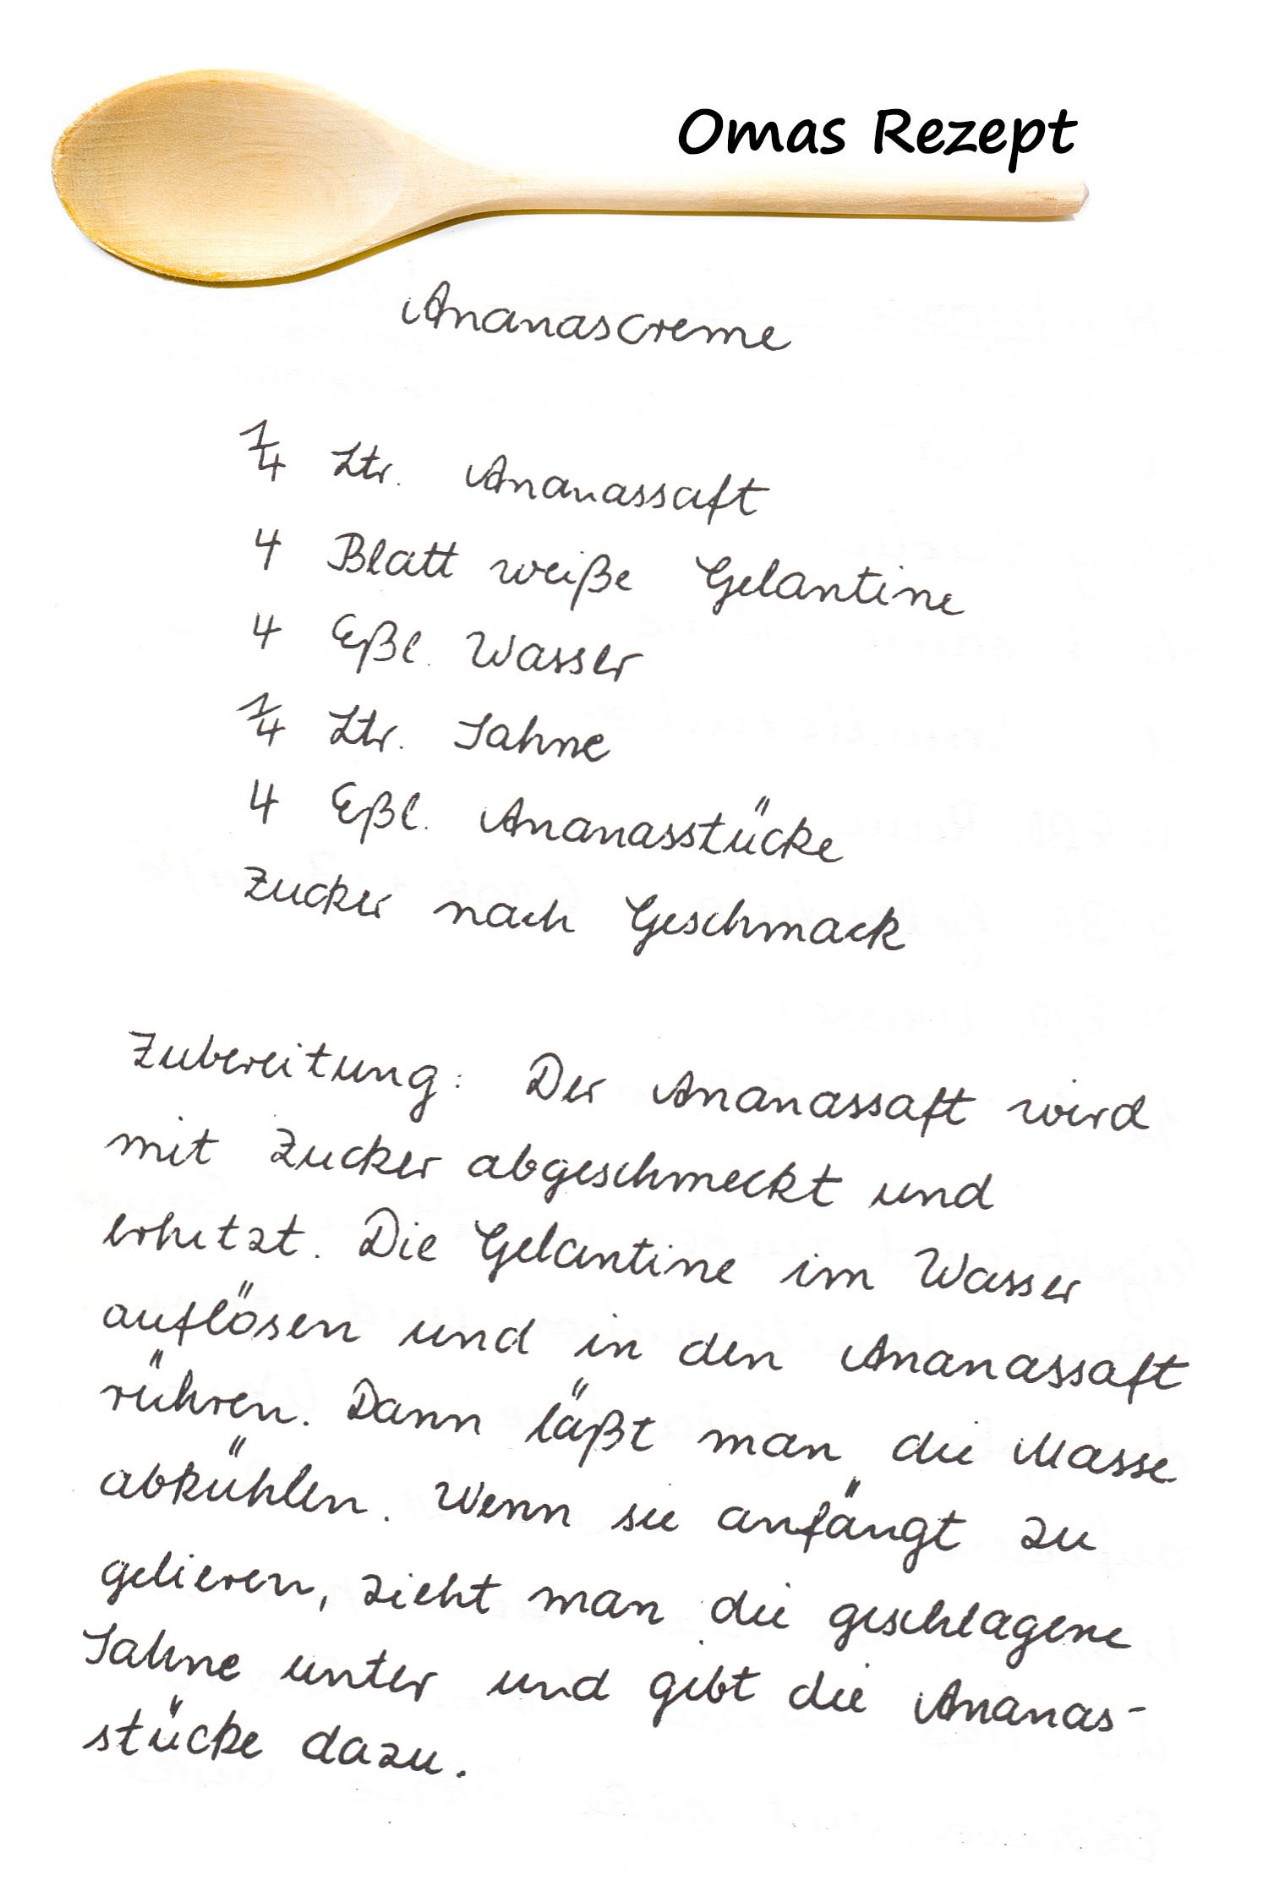 Omas Rezept
Ananascreme
1/4 Ltr. Ananassaft
4 Blatt weiße Gelantine
4 Eßl. Wasser
1/4 Ltr. Sahne
4 Eßl. Ananasstücke
Zucker nach Geschmack
Zubereitung: Der Ananassaft wird
mit Zucker abgeschmeckt und
erhitzt. Die Gelantine im Wasser
auflösen und in den Ananassaft
rühren. Dann läßt man die Masse
abkühlen. Wenn sie anfängt zu
gelieren, zieht man die geschlagene
Sahne unter und gibt die Ananas-
stücke dazu.